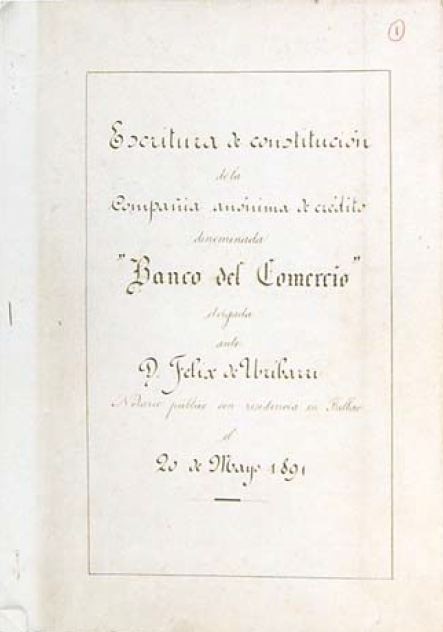 1
Escritura de constitución
de la
Compañia anónima de crédito
denominada
"Banco del Comercio"
otorgada
ante
D. Felix de Uribarri
Notario público con residencia en Bilbao
el
20 de Mayo 1891